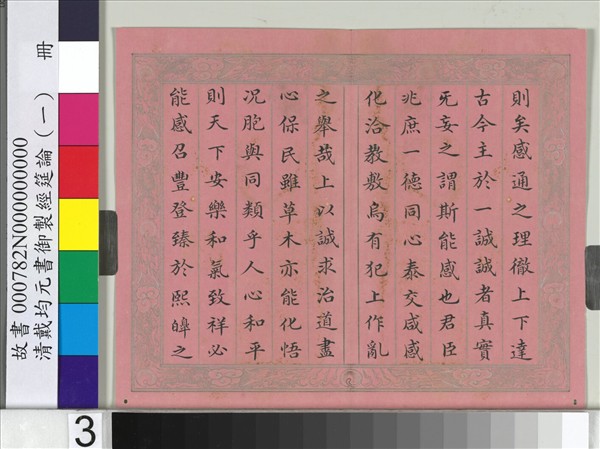 則矣感通之理徹上下達
古今主於一誠誠者真實
无妄之謂斯能感也君臣
兆庶一德同心泰交咸感
化洽教敷烏有犯上作亂
之舉哉上以誠求治道盡
心保民雖草木亦能化悟
况胞與同類乎人心和平
則天下安樂和氣致祥必
能感召豐登臻於熙皞之
故書 000782N000000000 冊
清戴均元書御製經筵論(一)
3